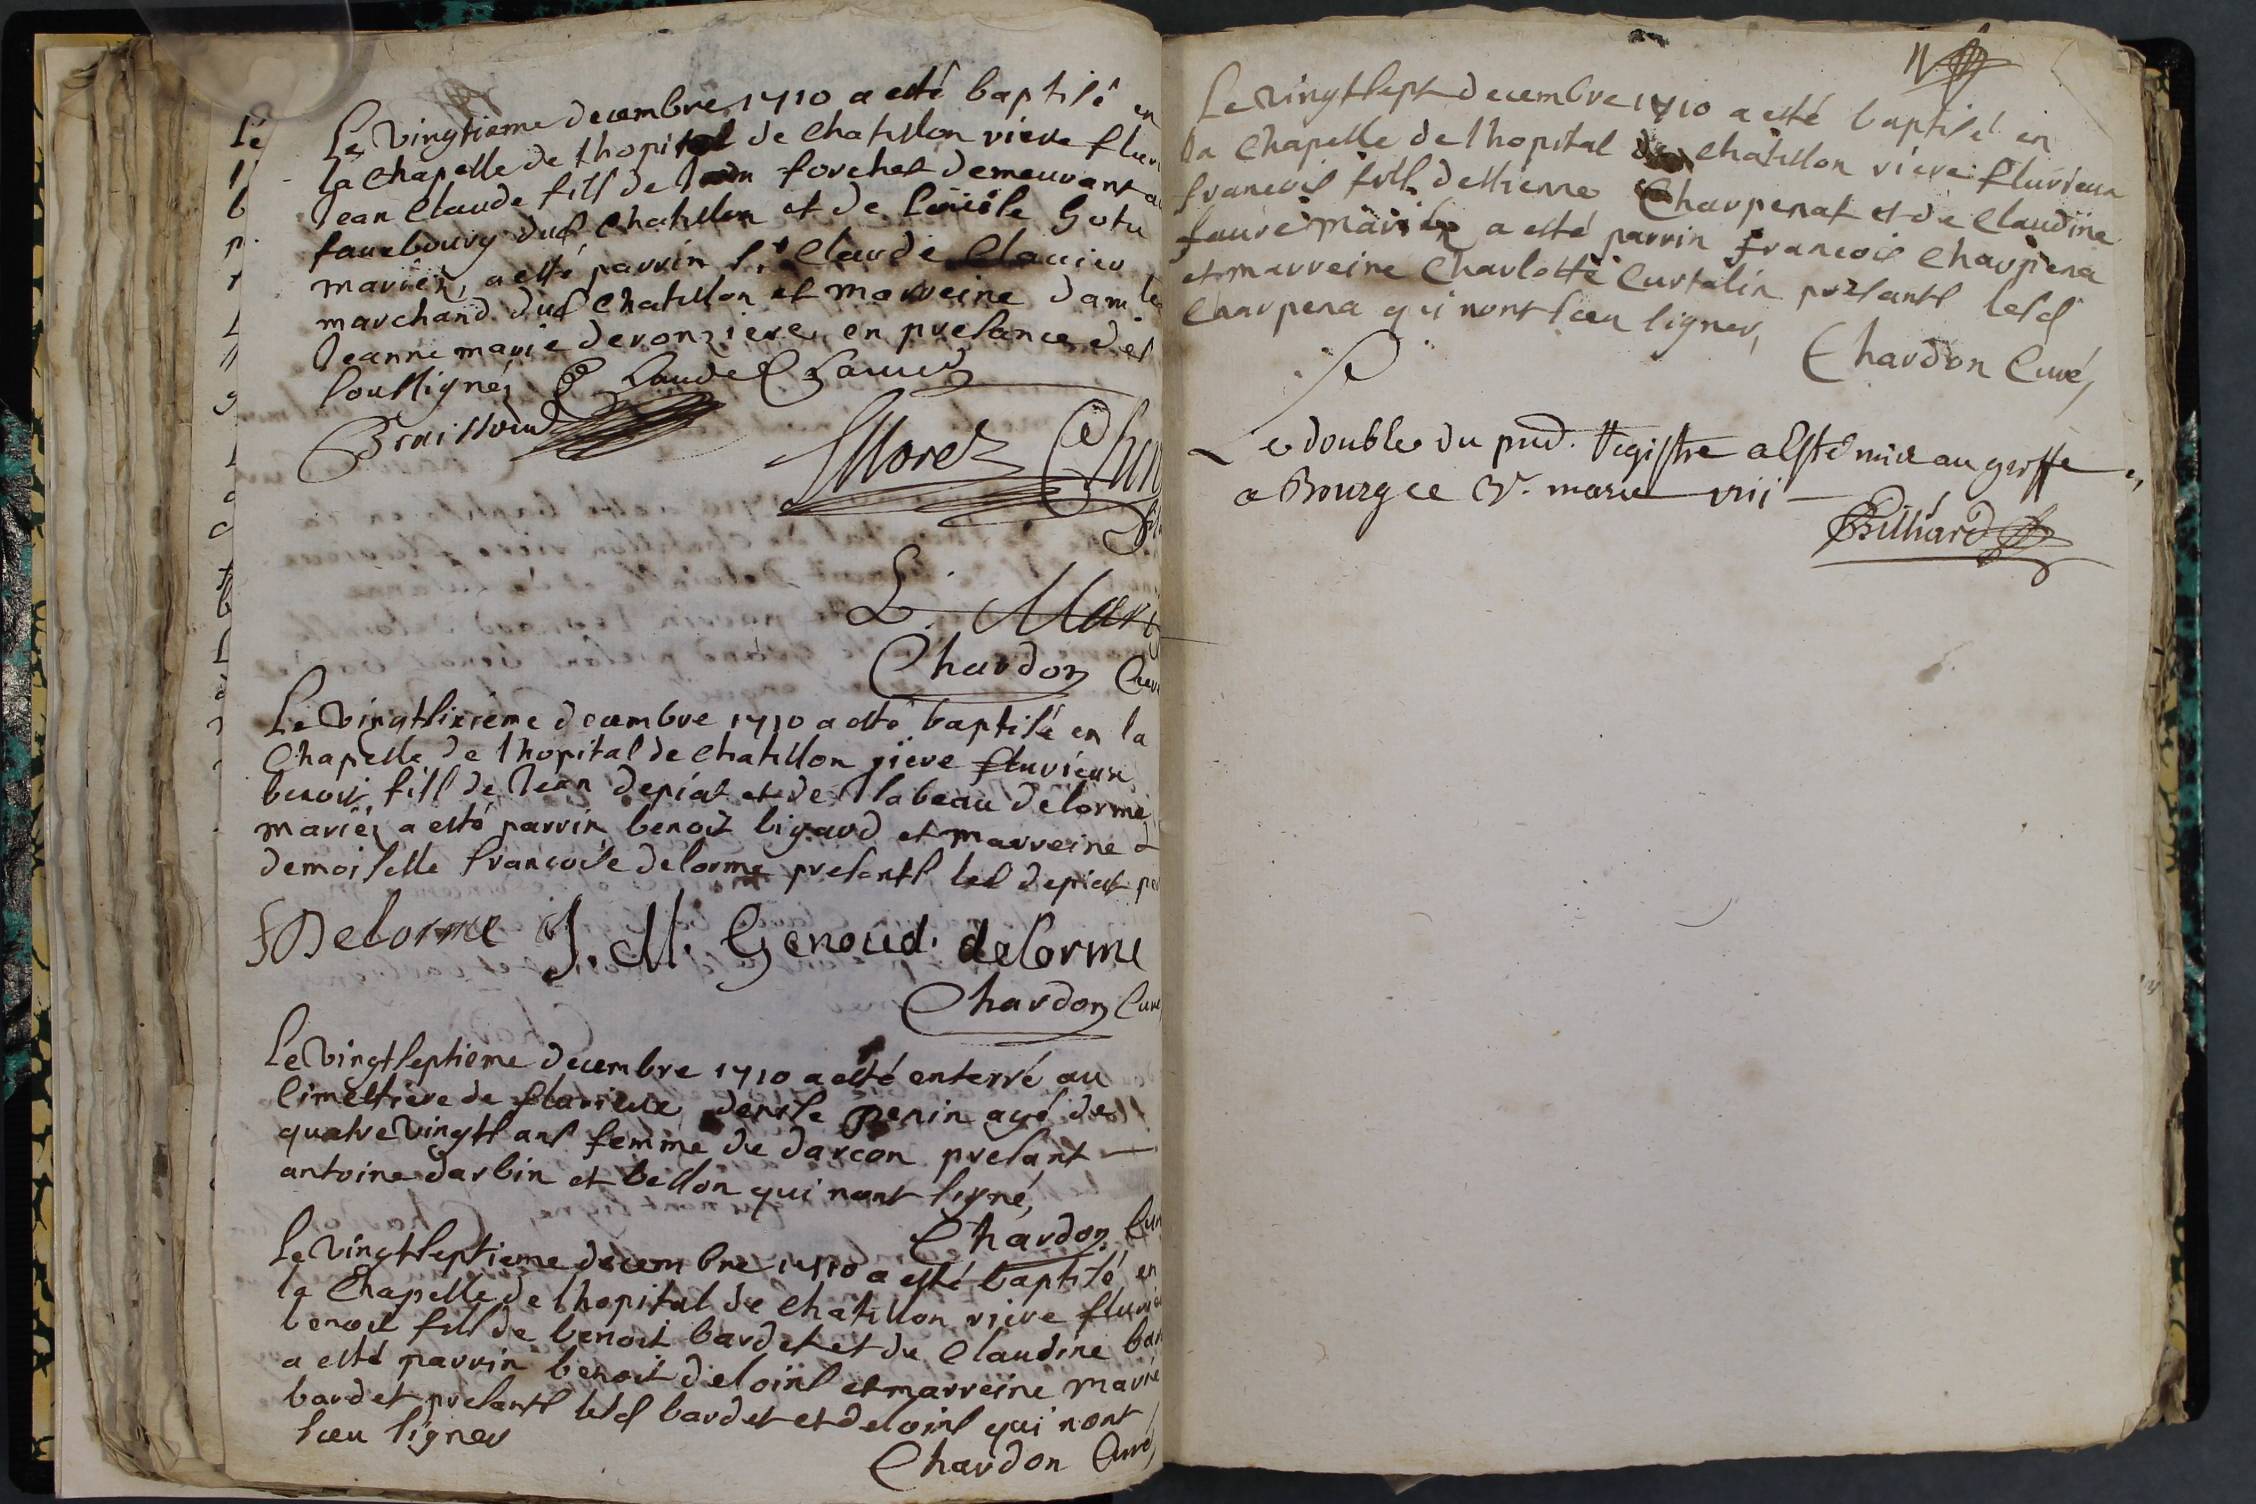 Le vingtieme decembre 1710 a esté baptisé en
la chapelle de lhopital de chatillon riere
Jean claude fils de forchet demeurant
fauxbourg dud chatillon et de loüise
mariéz, a esté parrin sr claude
marchand dud chatillon et marreine
Jeanne marie deronziere en presance des
soussignéz Claude
Chardon
Le vingtsixieme decembre 1710 a esté baptisé en la
chapelle de lhopital de chatillon riere flurieux
benoit fils de Jean depiat et de Isabeau delorme
mariéz a esté parrin benoit bigaud et marreine
demoiselle francoise delorme presants led depiat
fDelorme J. M. Genoud delorme
Chardon Curé
Le vingtseptieme decembre 1710 a esté enterré au
cimestiere de flurieux denise penin agé de
quatrevingts ans femme de darcon presant
antoine darbin et bellon qui nont signé,
Chardon
Le vingtseptieme decembre 1710 a esté baptisé en
la Chapelle de lhopital de chatillon riere
benoit fils de benoit bardet et de Claudine
a esté parrin benoit deloins et marreine marie
bardet presants lesd bardet et deloins qui nont
sceu signer
Chardon Curé
Le vingtsept decembre 1710 a esté baptisé en
la chapelle de lhopital de chatillon riere flurieux
francois fils destienne Charpenat et de claudine
faure mariéz a esté parrin francois charpena
et marreine charlotte curtalin présants lesd
charpena qui nont sceu signer,
Chardon Curé,
Le double du pnd. Registre a Esté mis au greffe
a Bourg ce
Billiard